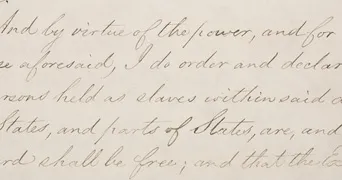 And by virtue of the power, and for
aforesaid, I do order and declar
held as slaves within said d
States, and parts of States, are, and
shall be free; and that the Ex